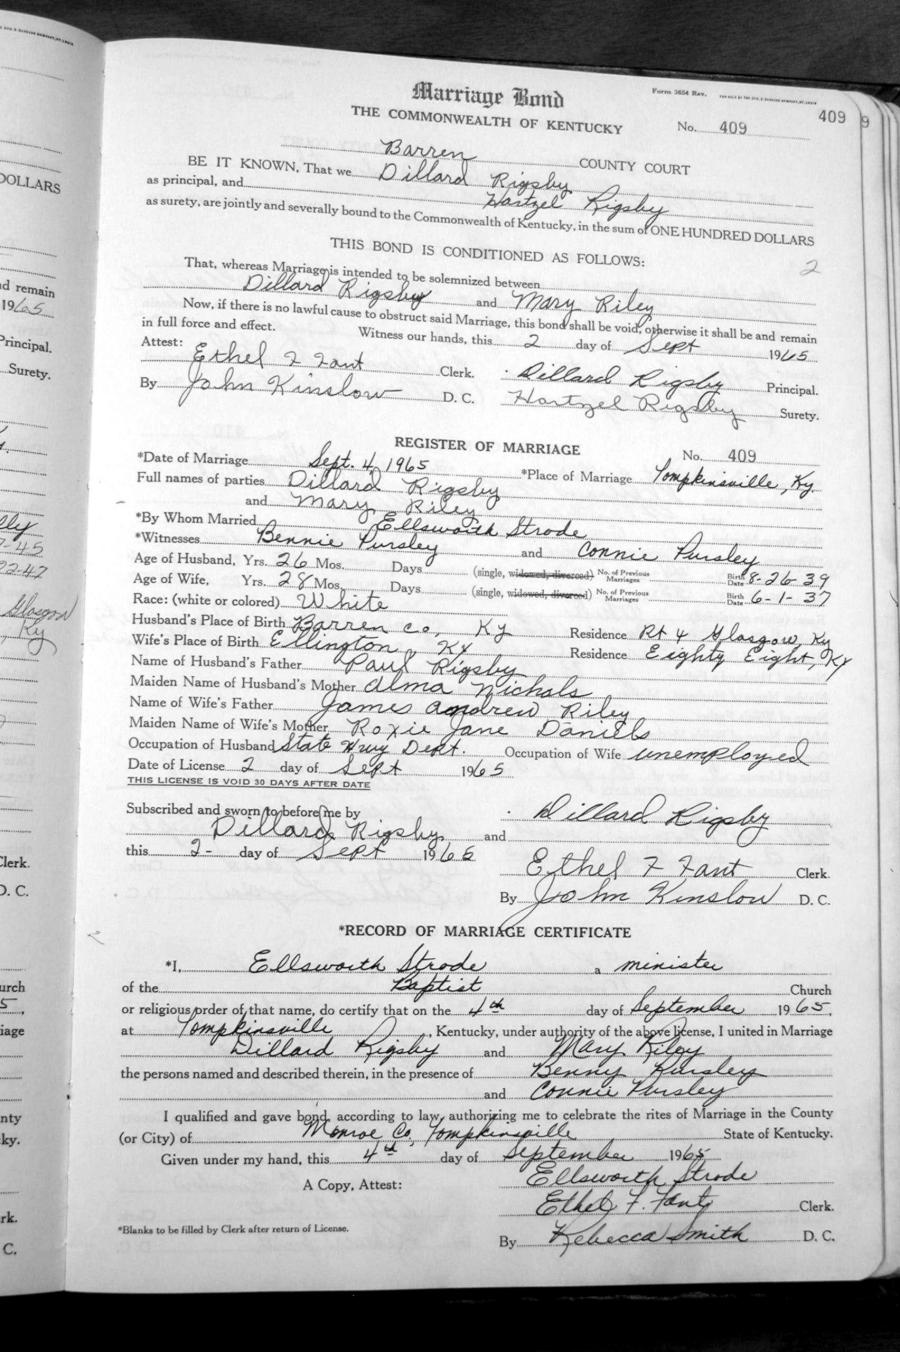 Marriage Bond
Form 3654 Rev.
409
THE COMMONWEALTH OF KENTUCKY
No. 409
Barren COUNTY COURT
BE IT KNOWN, That we Dillard Rigsby
as principal, and Hartzel Rigsby
as surety, are jointly and severally bound to the Commonwealth of Kentucky, in the sum of ONE HUNDRED DOLLARS
THIS BOND IS CONDITIONED AS FOLLOWS:
2
That, whereas Marriage is intended to be solemnized between
Dillard Rigsby and Mary Riley
Now, if there is no lawful cause to obstruct said Marriage, this bond shall be void, otherwise it shall be and remain
in full force and effect. Witness our hands, this 2 day of Sept 1965
Attest: Ethel F Fant Clerk. Dillard Rigsby Principal.
By John Kinslow D. C. Hartzel Rigsby Surety.
REGISTER OF MARRIAGE No. 409
*Date of Marriage Sept. 4, 1965 *Place of Marriage Tompkinsville, Ky.
Full names of parties Dillard Rigsby
and Mary Riley
*By Whom Married Ellsworth Strode
*Witnesses Bennie Pursley and Connie Pursley
Age of Husband, Yrs. 26 Mos. Days (single, widowed, divorced) No. of Previous Marriages Birth Date 8-26-39
Age of Wife, Yrs. 28 Mos. Days (single, widowed, divorced) No. of Previous Marriages Birth Date 6-1-37
Race: (white or colored) White
Husband's Place of Birth Barren Co, Ky Residence Rt 4 Glasgow, Ky
Wife's Place of Birth Ellington, Ky Residence Eighty Eight, Ky
Name of Husband's Father Paul Rigsby
Maiden Name of Husband's Mother Alma Nichols
Name of Wife's Father James Andrew Riley
Maiden Name of Wife's Mother Roxie Jane Daniels
Occupation of Husband State Hwy Dept. Occupation of Wife unemployed
Date of License 2 day of Sept 1965
THIS LICENSE IS VOID 30 DAYS AFTER DATE
Subscribed and sworn to before me by Dillard Rigsby
Dillard Rigsby and
this 2- day of Sept 1965 Ethel F Fant Clerk.
By John Kinslow D. C.
*RECORD OF MARRIAGE CERTIFICATE
*I, Ellsworth Strode a minister
of the Baptist Church
or religious order of that name, do certify that on the 4th day of September 1965,
at Tompkinsville, Kentucky, under authority of the above license, I united in Marriage
Dillard Rigsby and Mary Riley
the persons named and described therein, in the presence of Benny Pursley
and Connie Pursley
I qualified and gave bond, according to law, authorizing me to celebrate the rites of Marriage in the County
(or City) of Monroe Co, Tompkinsville State of Kentucky.
Given under my hand, this 4th day of September 1965
Ellsworth Strode
A Copy, Attest: Ethel F. Fant Clerk.
*Blanks to be filled by Clerk after return of License.
By Rebecca Smith D. C.
DOLLARS
nd remain
1965
Principal.
Surety.
7-45
22-47
Glasgow
, Ky
Clerk.
D. C.
urch
iage
nty
ky.
rk.
C.
9